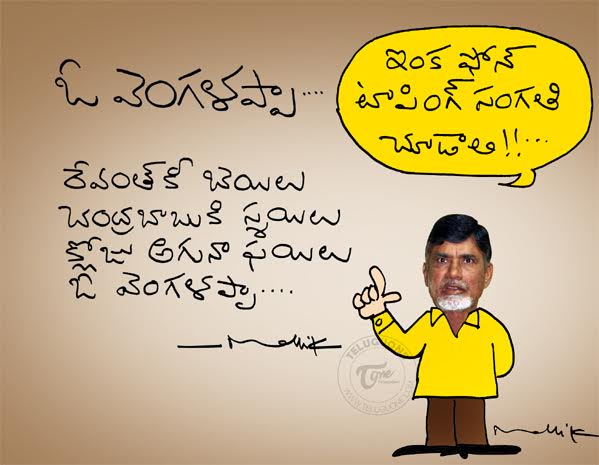 ఓ వెంగళప్పా....
ఇంక ఫోన్
టాపింగ్ సంగతి
చూడాలి!!...
రేవంత్‌కి బెయిలు
చంద్రబాబుకి స్మయిలు
క్లోజు అగునా ఫయిలు
ఓ వెంగళప్పా....
Mallik
TELUGUONE
Tone
WWW.TELUGUONE.COM
Mallik